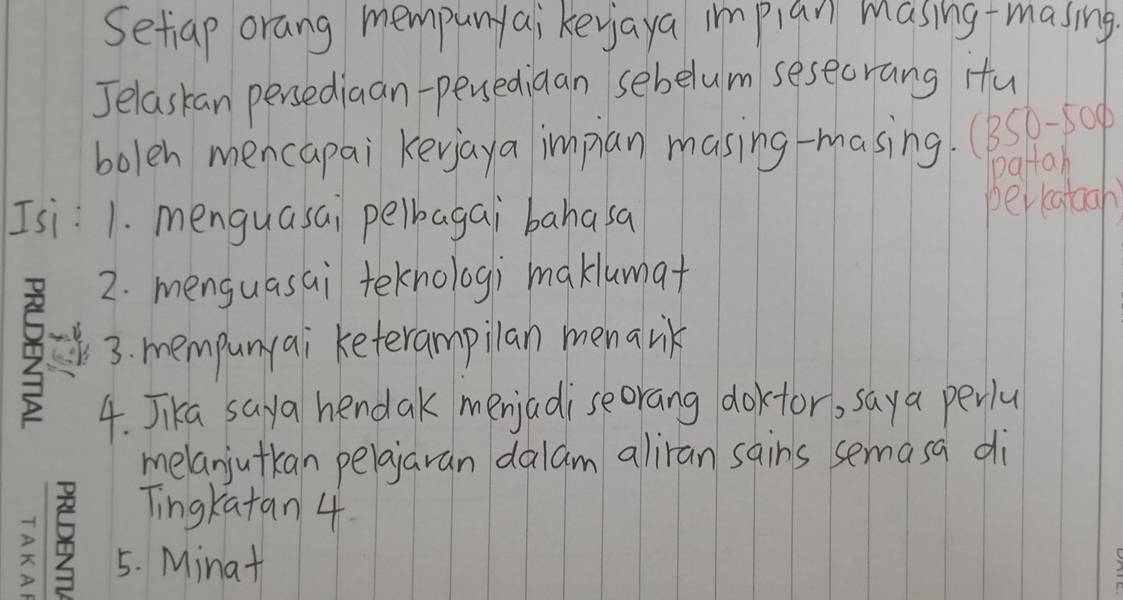 Setiap orang mempunyai kerjaya impian masing-masing.
Jelaskan persediaan-persediaan sebelum seseorang itu
boleh mencapai kerjaya impian masing-masing. (350-500
patah
perkataan)
Isi: 1. menguasai pelbagai bahasa
2. menguasai teknologi maklumat
3. mempunyai keterampilan menarik
4. Jika saya hendak menjadi seorang doktor, saya perlu
melanjutkan pelajaran dalam aliran sains semasa di
Tingkatan 4
5. Minat
PRUDENTIAL
PRUDENTIA
TAKAF